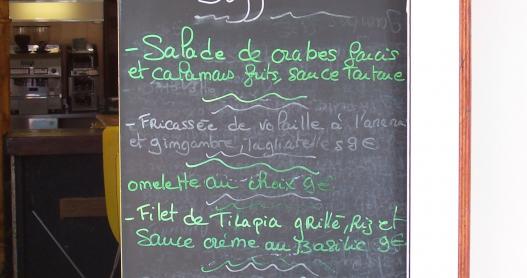 - Salade de crabes farcis
et calamars frits, sauce Tartare
- FRICASSÉE de volaille à l'anana
et gimgambre, Tagliatelles 9€
omelette au choix 9€
- Filet de Tilapia grillé, Riz et
Sauce crème au Basilic 9€